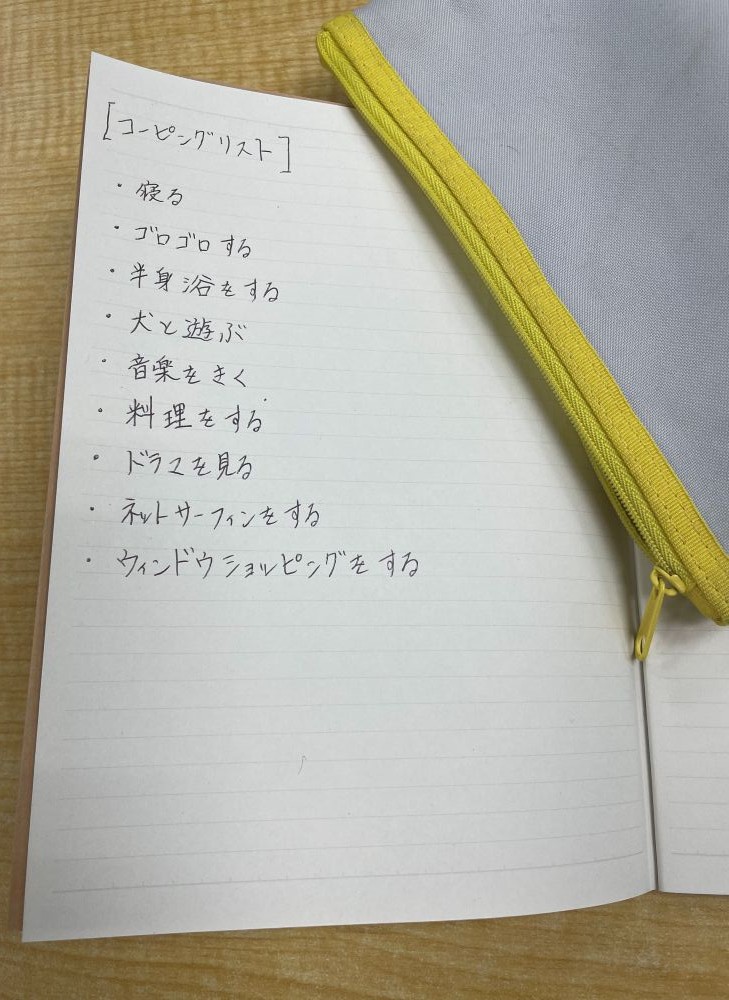 [コーピングリスト]
・寝る
・ゴロゴロする
・半身浴をする
・犬と遊ぶ
・音楽をきく
・料理をする
・ドラマを見る
・ネットサーフィンをする
・ウィンドウショッピングをする